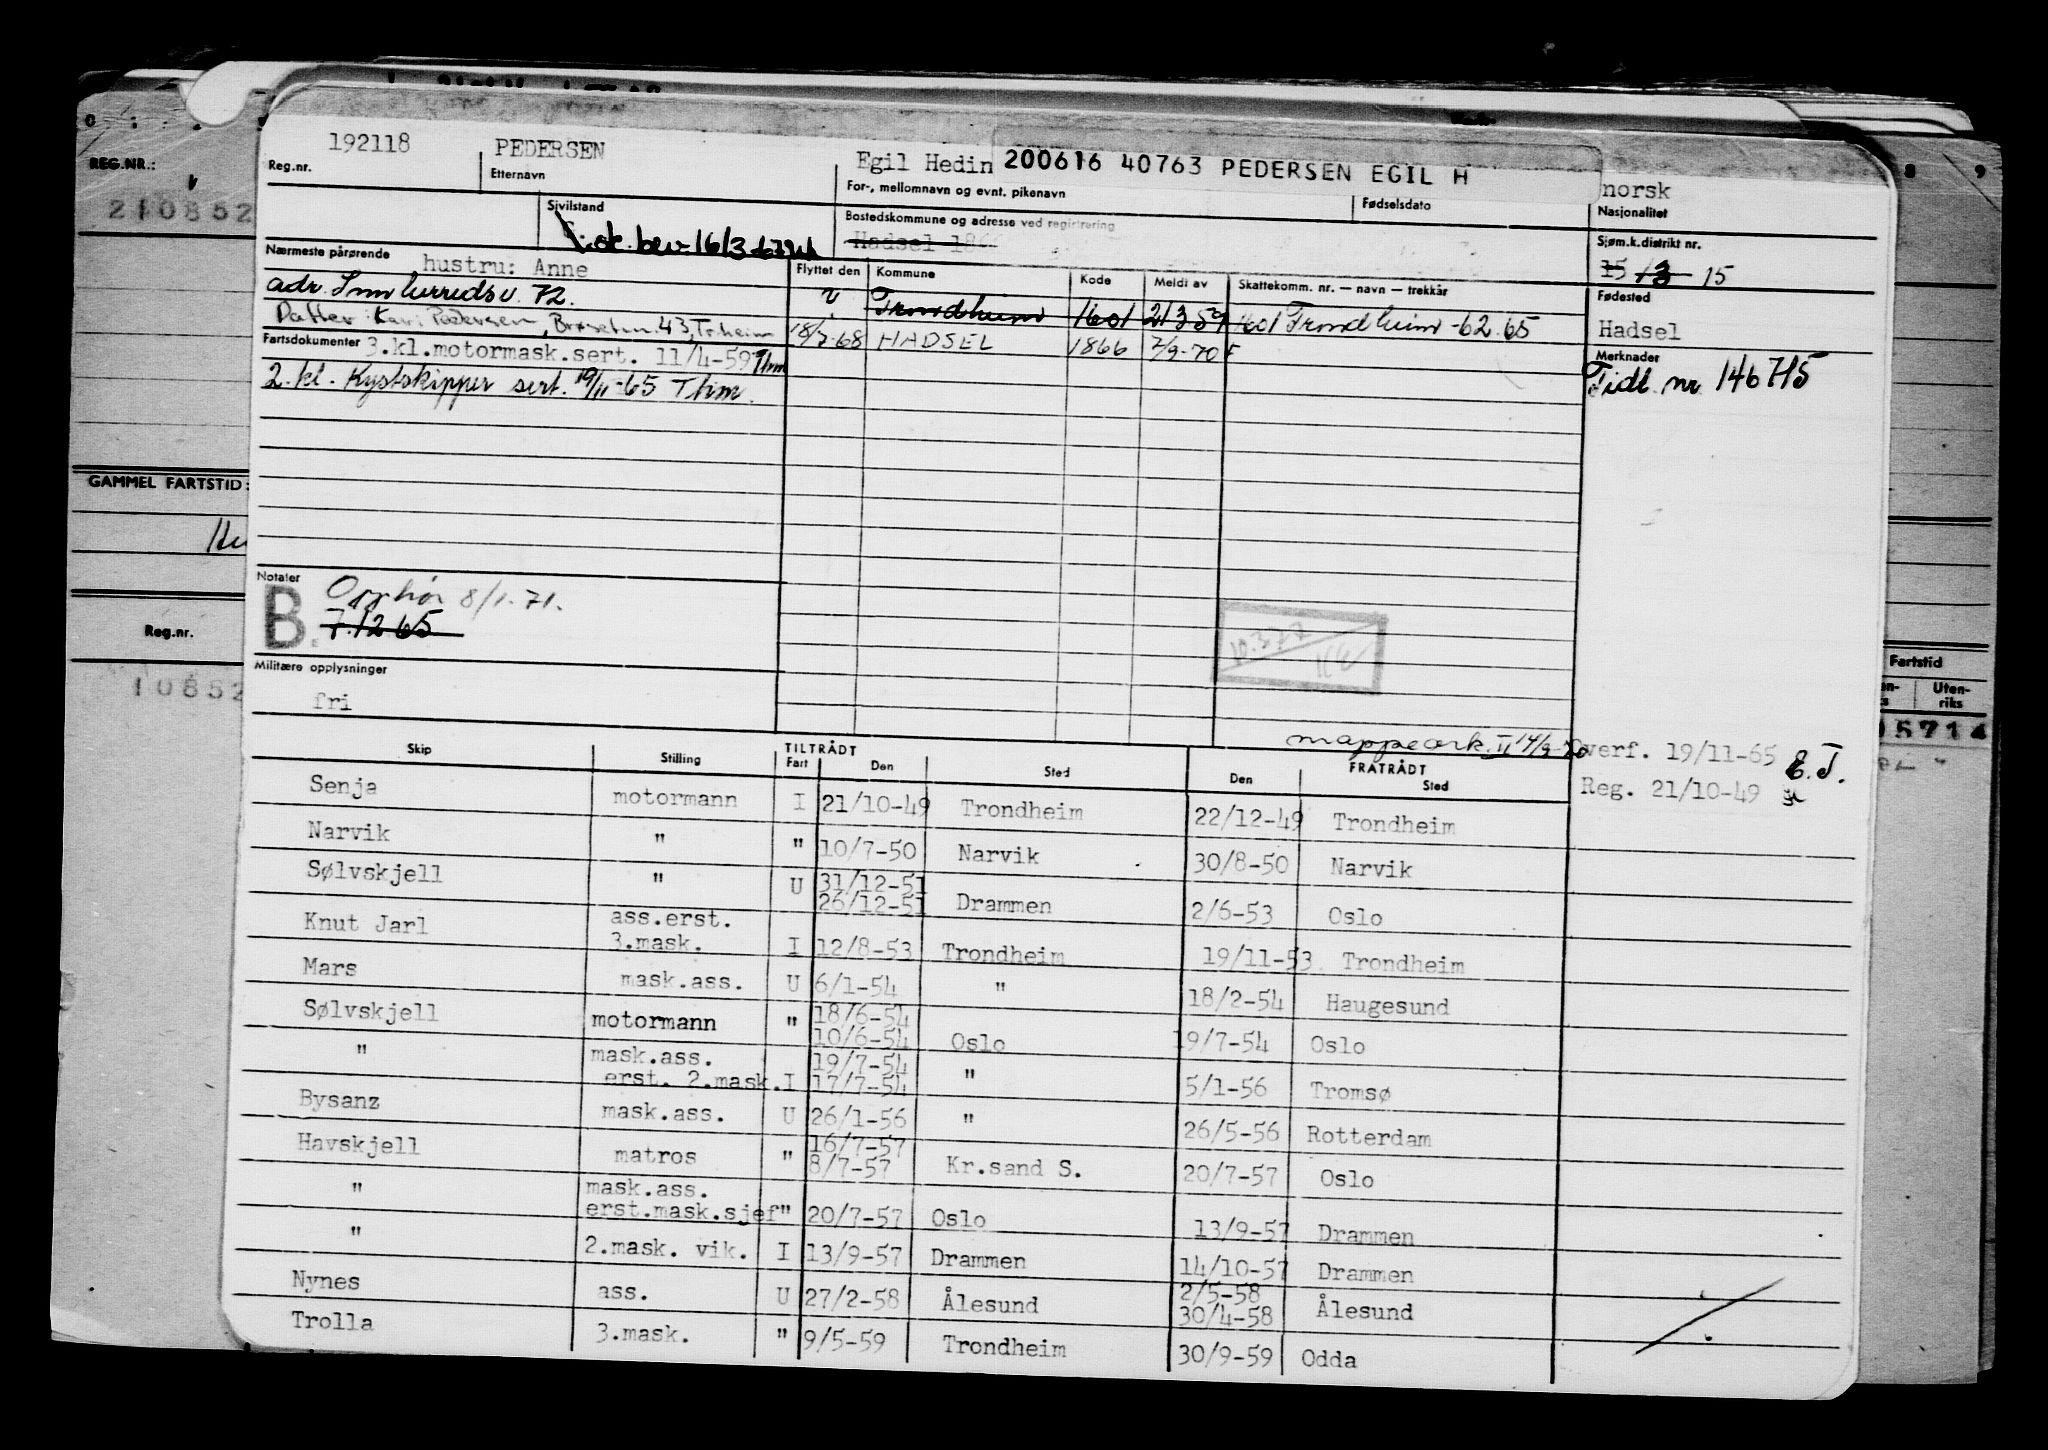 REG.NR.:
210852
GAMMEL FARTSTID:
Reg.nr.
10852
192118
Reg.nr.
PEDERSEN
Etternavn
Egil Hedin 200616 40763 PEDERSEN EGIL H
For-, mellomnavn og evnt. pikenavn
Fødselsdato
norsk
Nasjonalitet
Sivilstand
Bostedskommune og adresse ved registrering
Hadsel
Sjøm.k.distrikt nr.
15 13 15
Nærmeste pårørende
hustru: Anne
Flyttet den
Kommune
Kode
Meldt av
Skattekomm. nr. — navn — trekkår
Fødested
Hadsel
adr. 72.
Trondheim 1601 21359 1601 Trondheim -62.65
Datter Kari Pedersen, 43, Tr.heim
18/7-68 HADSEL 1866 7/9-70 F
Merknader
Tidl. nr. 146715
Fartsdokumenter 3.kl.motormask.sert. 11/4-59 Thm
2.kl. Kystskipper sert. 19/11-65 Thm.
Notater
B
Opphør 8/1.71.
7.12 65
Militære opplysninger
fri
10.377
mappeark. II 14/9-70
Overf. 19/11-65 E.T.
Reg. 21/10-49
Skip Stilling TILTRÅDT Fart Den Sted FRATRÅDT Den Sted
Senja motormann I 21/10-49 Trondheim 22/12-49 Trondheim
Narvik " " 10/7-50 Narvik 30/8-50 Narvik
Sølvskjell " U 31/12-51 26/12-51 Drammen 2/6-53 Oslo
Knut Jarl ass.erst. 3.mask. I 12/8-53 Trondheim 19/11-53 Trondheim
Mars mask.ass. U 6/1-54 " 18/2-54 Haugesund
Sølvskjell motormann " 18/6-54 10/6-54 Oslo 19/7-54 Oslo
" mask.ass. erst. 2.mask. I 19/7-54 17/7-54 " 5/1-56 Tromsø
Bysanz mask.ass. U 26/1-56 " 26/5-56 Rotterdam
Havskjell matros " 16/7-57 8/7-57 Kr.sand S. 20/7-57 Oslo
" mask.ass. erst.mask.sjef " 20/7-57 Oslo 13/9-57 Drammen
" 2.mask. vik. I 13/9-57 Drammen 14/10-57 Drammen
Nynes ass. U 27/2-58 Ålesund 2/5-58 30/4-58 Ålesund
Trolla 3.mask. " 9/5-59 Trondheim 30/9-59 Odda
8 9
Fartstid
Uten-
riks
5714